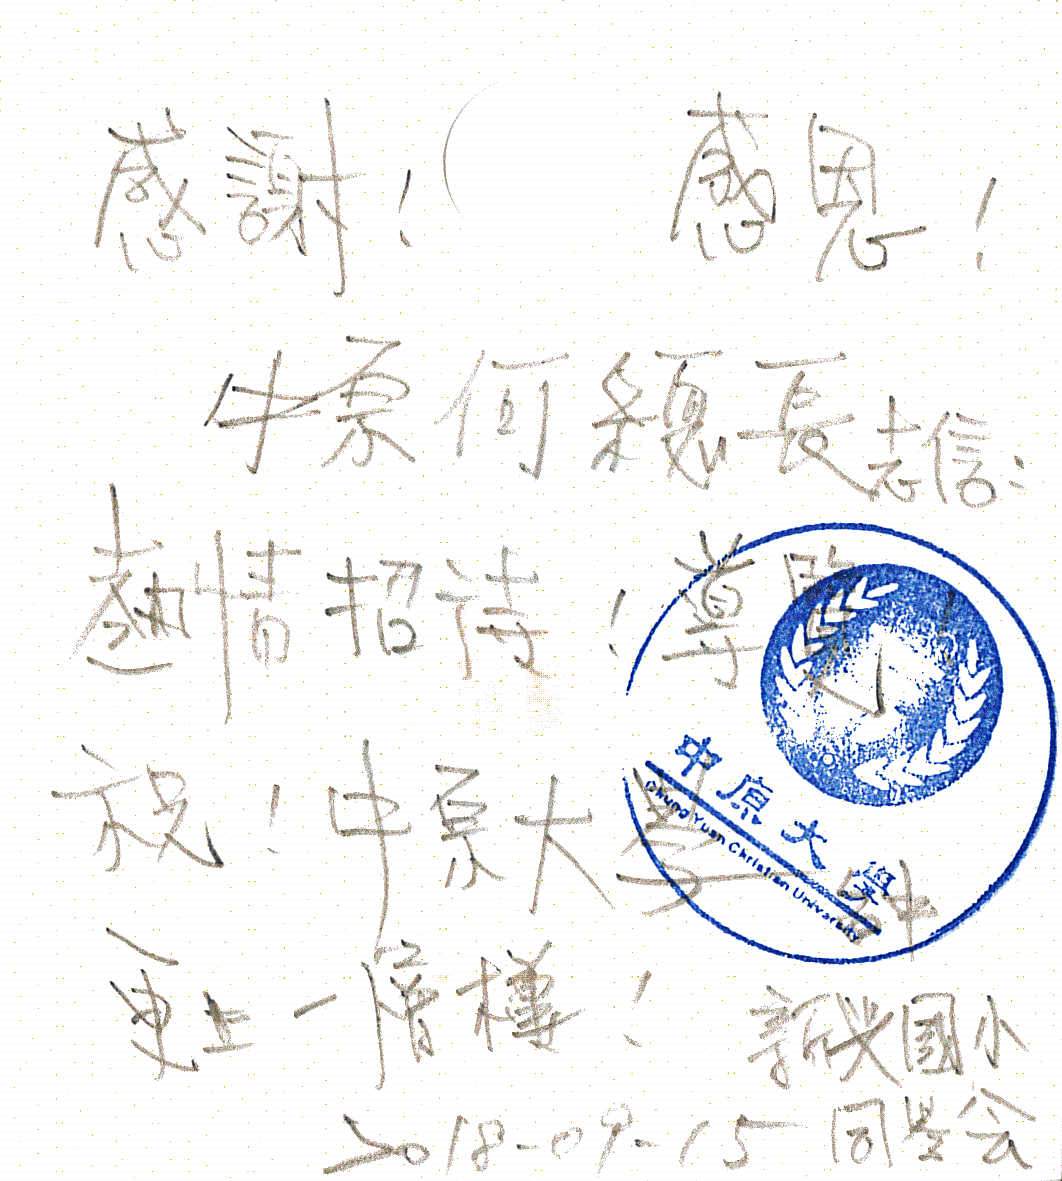 感謝! 感恩!
中原何總長志信:
熱情招待!尊賢!
祝!中原大學
更上一層樓!
新興國小
2018-09-15 同學會
中原大學
Chung Yuan Christian University